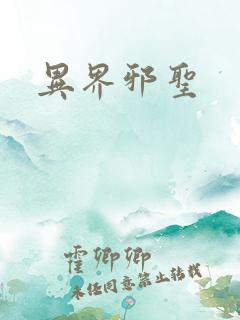 異界邪聖
霍卿卿
未経同意禁止转载